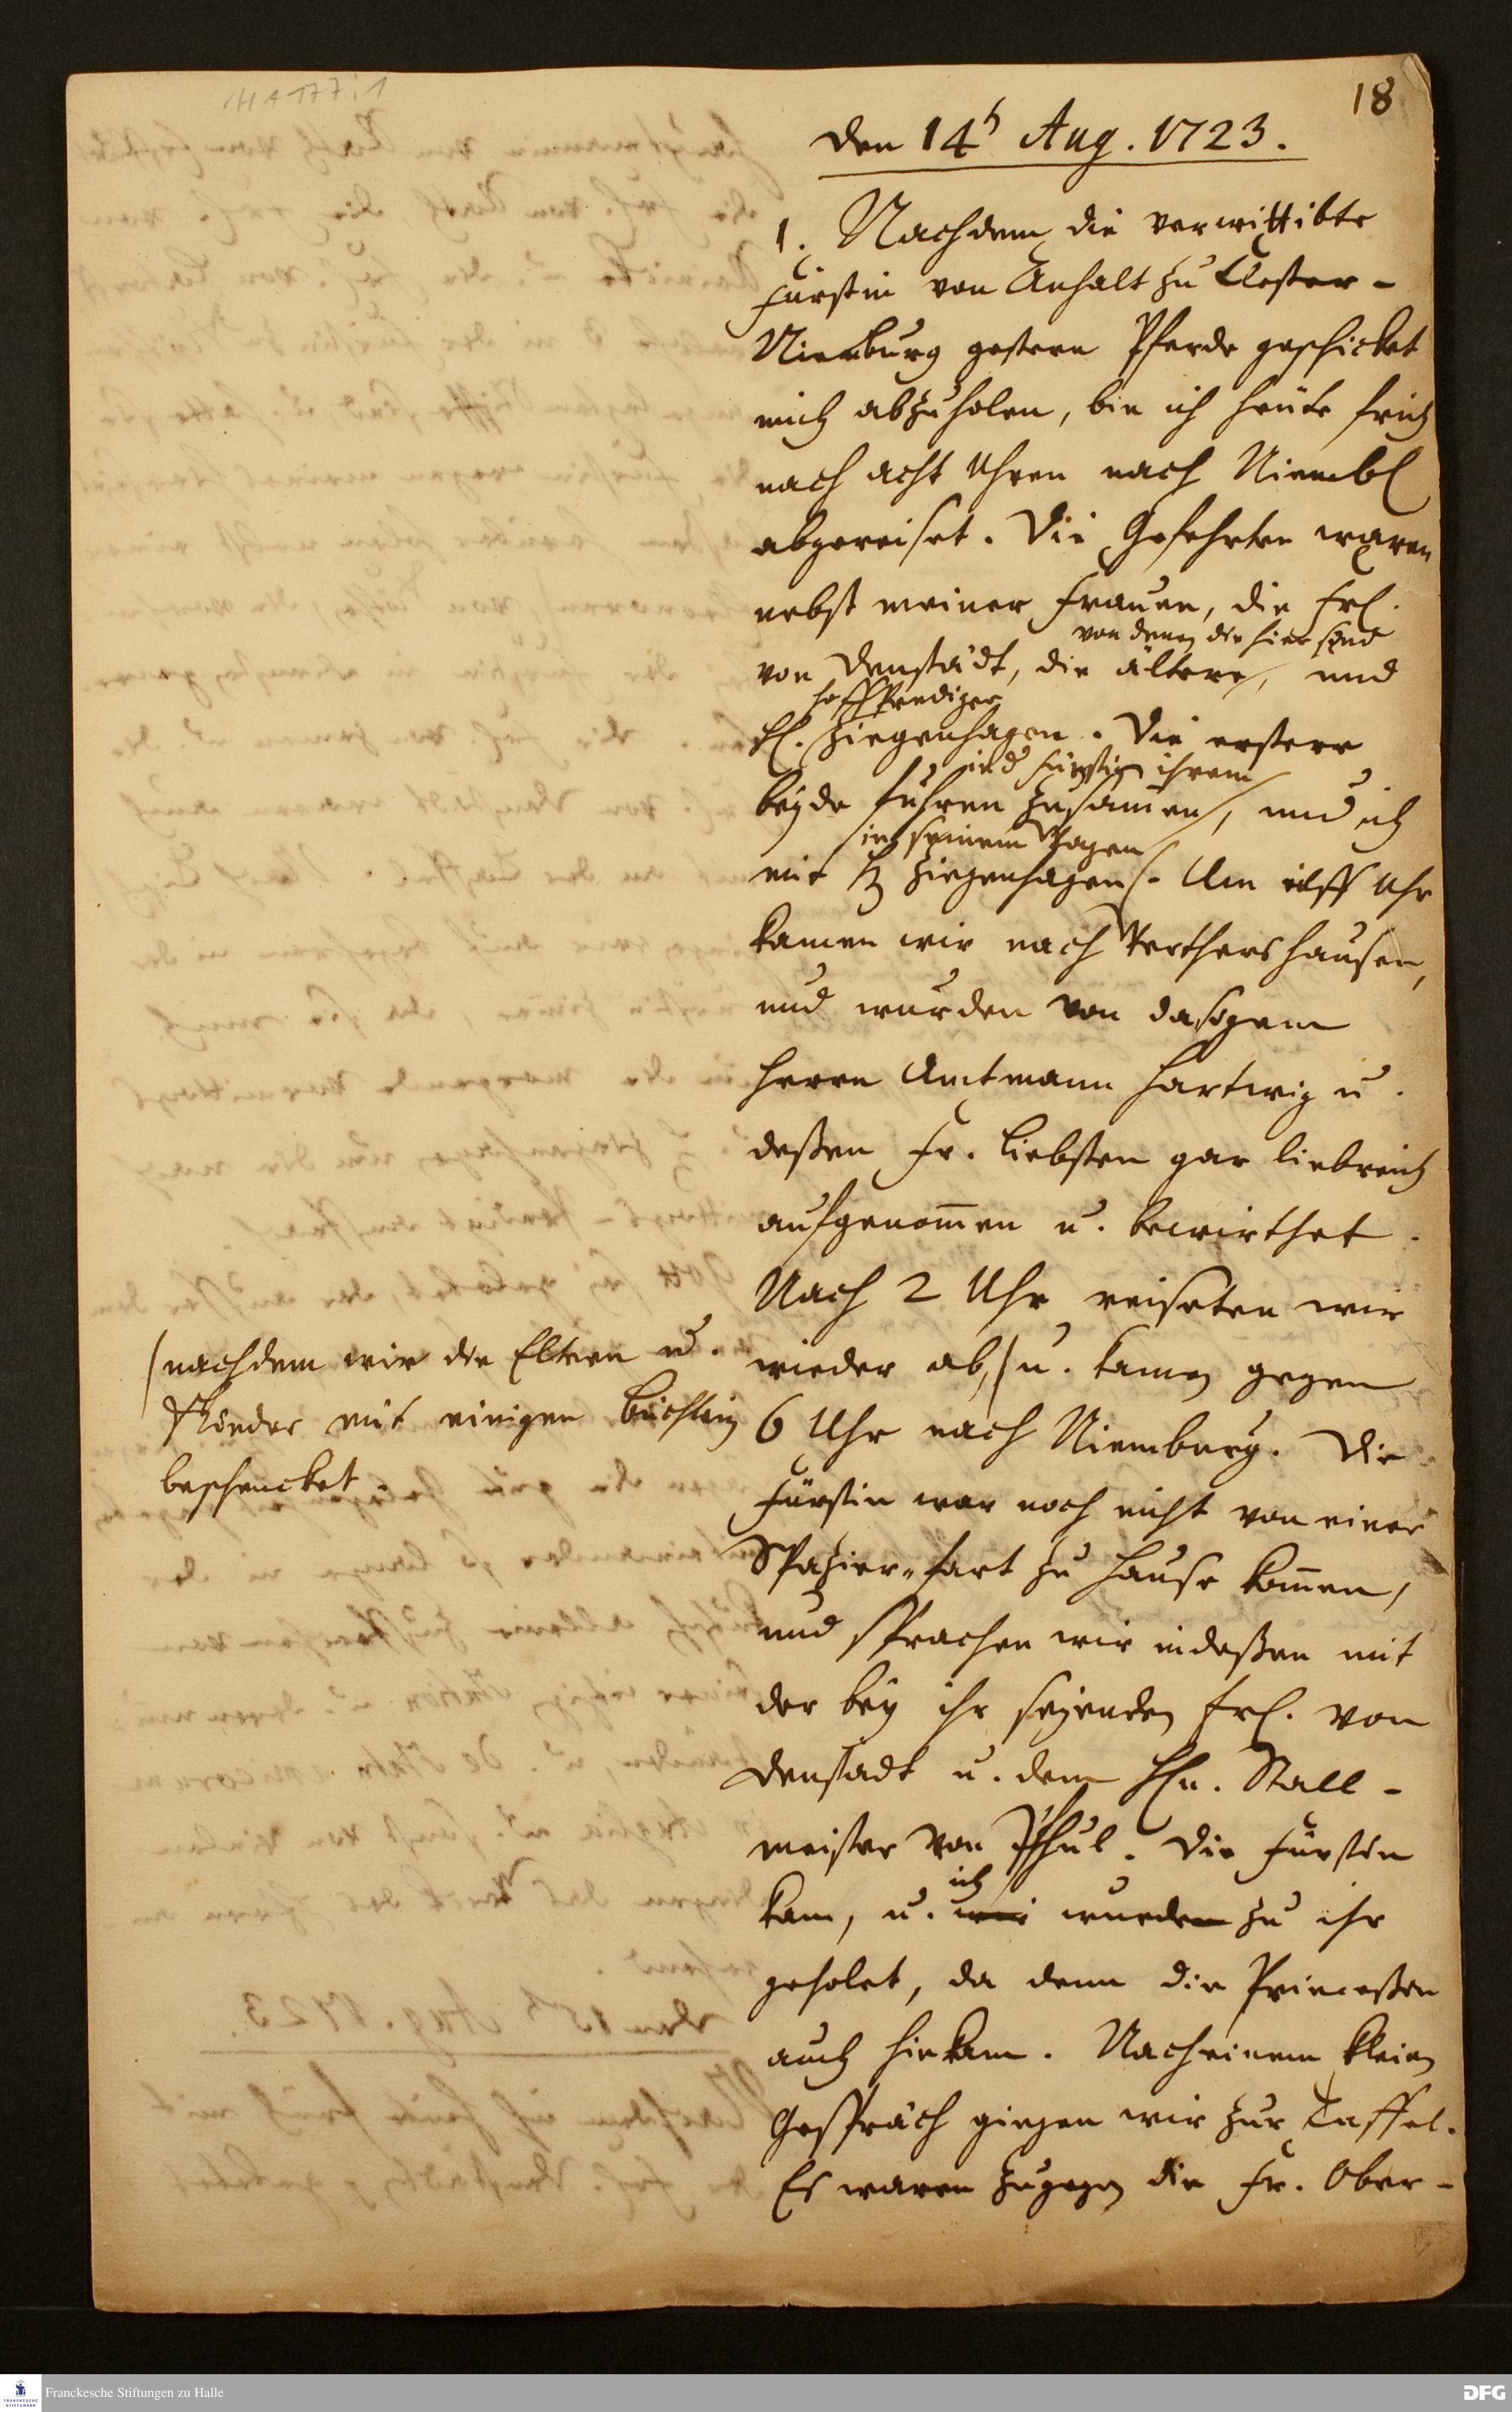 18
den 14ᵗ Aug. 1723.
1. Nachdem die verwittibte
Fürstin von Anhalt zu Closter-
Nienburg gestern Pferde geschicket
mich abzuholen, bin ich heute früh
nach acht Uhren nach Nienb.
abgereiset. Die Gefehrten waren
nebst meiner Frauen, die Frl.
von denen die hier sind
von Denstädt, die ältere, und
Hoffprediger
H. Ziegenhagen. Die erstere
ihrem
beyde fuhren zusamen, und ich
in seinem Wagen
mit H Ziegenhagen. Um eilff Uhr
kamen wir nach Werthershausen,
und wurden von dasigem
Herrn Amtmann Hartwig u.
deßen Fr. Liebsten gar liebreich
aufgenomen u. bewirthet.
Nach 2 Uhr reiseten wir
wieder ab, u. kamen gegen
nachdem wir die Eltern u.
Kinder mit einigen Büchlein
beschencket.
6 Uhr nach Nienburg. Die
Fürstin war noch nicht von einer
Spazier-fart zu Hause komen,
und sprachen wir indeßen mit
der bey ihr seyenden Frl. von
Denstadt u. dem Hn. Stall-
meister von Pfhul. Die Fürstin
ich
kam, u. wir wurden zu ihr
geholet, da denn die Princeßen
auch hinkam. Nach einem kleinen
Gespräch gingen wir zur Taffel.
Es waren zugegen die Fr. Ober-
Franckesche Stiftungen zu Halle
DFG